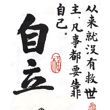 从来就没有救世
主,凡事都要靠
自己。
自立